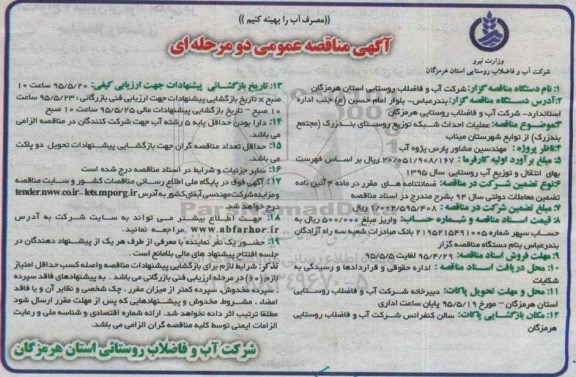 ((مصرف آب را بهینه کنیم))
آگهی مناقصه عمومی دو مرحله ای
وزارت نیرو
شرکت آب و فاضلاب روستایی استان هرمزگان
۱: نام دستگاه مناقصه گزار: شرکت آب و فاضلاب روستایی استان هرمزگان
۲: آدرس دستگاه مناقصه گزار: بندرعباس- بلوار امام حسین (ع) جنب اداره
استاندارد- شرکت آب و فاضلاب روستایی هرمزگان
۳: موضوع مناقصه: عملیات احداث شبکه توزیع روستای بندزرک (مجتمع
بندزرک) از توابع شهرستان میناب
۴: ناظر پروژه : مهندسین مشاور پارس پژوه آب
۵: مبلغ برآورد اولیه کارفرما : ۲۰/۰۵۱/۹۰۸/۱۶۷ ریال بر اساس فهرست
بهای انتقال و توزیع آب روستایی سال ۱۳۹۵
۶: نوع تضمین شرکت در مناقصه: ضمانتنامه های مقرر در ماده ۴ آئین نامه
تضمین معاملات دولتی سال ۹۴ بشرح مندرج در اسناد مناقصه
۷: مبلغ تضمین شرکت در مناقصه: ۱/۰۰۲/۵۹۵/۴۰۸ ریال
۸: قیمت اسناد مناقصه و شماره حساب: واریز مبلغ ۵۰۰/۰۰۰ ریال به
حساب سپهر شماره ۲۱۹۵۲۱۵۴۹۱۰۰۵ بانک صادرات شعبه سه راه آزادگان
بندرعباس بنام دستگاه مناقصه گزار
۹: مهلت فروش اسناد مناقصه: ۹۵/۴/۲۹ لغایت ۹۵/۵/۵
۱۰: محل دریافت اسناد مناقصه : اداره حقوقی و قراردادها و رسیدگی به
شکایات
۱۱: محل و مهلت تحویل پاکات: دبیرخانه شرکت آب و فاضلاب روستایی
استان هرمزگان - مورخ ۹۵/۵/۱۹ پایان ساعت اداری
۱۲: مکان بازگشایی پاکات: سالن کنفرانس شرکت آب و فاضلاب روستایی
هرمزگان
۱۳: تاریخ بازگشائی پیشنهادات جهت ارزیابی کیفی: ۹۵/۵/۲۰ ساعت ۱۰
صبح * تاریخ بازگشایی پیشنهادات جهت ارزیابی فنی بازرگانی : ۹۵/۵/۲۳ساعت
۱۰ صبح - تاریخ بازگشایی پیشنهادات مالی ۹۵/۵/۲۵ ساعت ۱۰ صبح
۱۴: دارا بودن حداقل پایه ۵ رشته آب جهت شرکت کنندگان در مناقصه الزامی
می باشد.
۱۵: حداقل تعداد مناقصه گران جهت بازگشایی پیشنهادات تحویل دو پاکت
می باشد.
۱۶: سایر جزئیات و شرایط در اسناد مناقصه درج شده است
۱۷: آگهی فوق در پایگاه ملی اطلاع رسانی مناقصات کشور و سایت مناقصه
ومزایده شرکت مهندسی آبفای کشور به آدرس iets.mporg.ir-tender.nww.co.ir
درج خواهد شد.
۱۸: جهت اطلاع بیشتر می تواند به سایت شرکت به آدرس
www.abfarhor.ir مراجعه نمائید.
۱۹: حضور یک نفر نماینده با معرفی از طرف هر یک از پیشنهاد دهندگان در
جلسه افتتاح پیشنهاد های مالی بلامانع است .
تذکر: شرایط لازم برای بازگشایی پیشنهادات مناقصه واصله کسب حداقل امتیاز
لازم (۶۰) در مرحله ارزیابی فنی بازرگانی می باشد . به پیشنهادهای فاقد سپرده
، سپرده مخدوش، سپرده کمتر از میزان مقرر ، چک شخصی و نظایر آن و یا فاقد
امضاء ، مشروط، مخدوش و پیشنهادهایی که پس از مهلت مقرر ارسال شود
مطلقا ترتیب اثر داده نخواهد شد. ارائه شماره اقتصادی و شناسه ملی و رعایت
الزامات ایمنی توسط کلیه مناقصه گران الزامی می باشد.
شرکت آب و فاضلاب روستائی استان هرمزگان